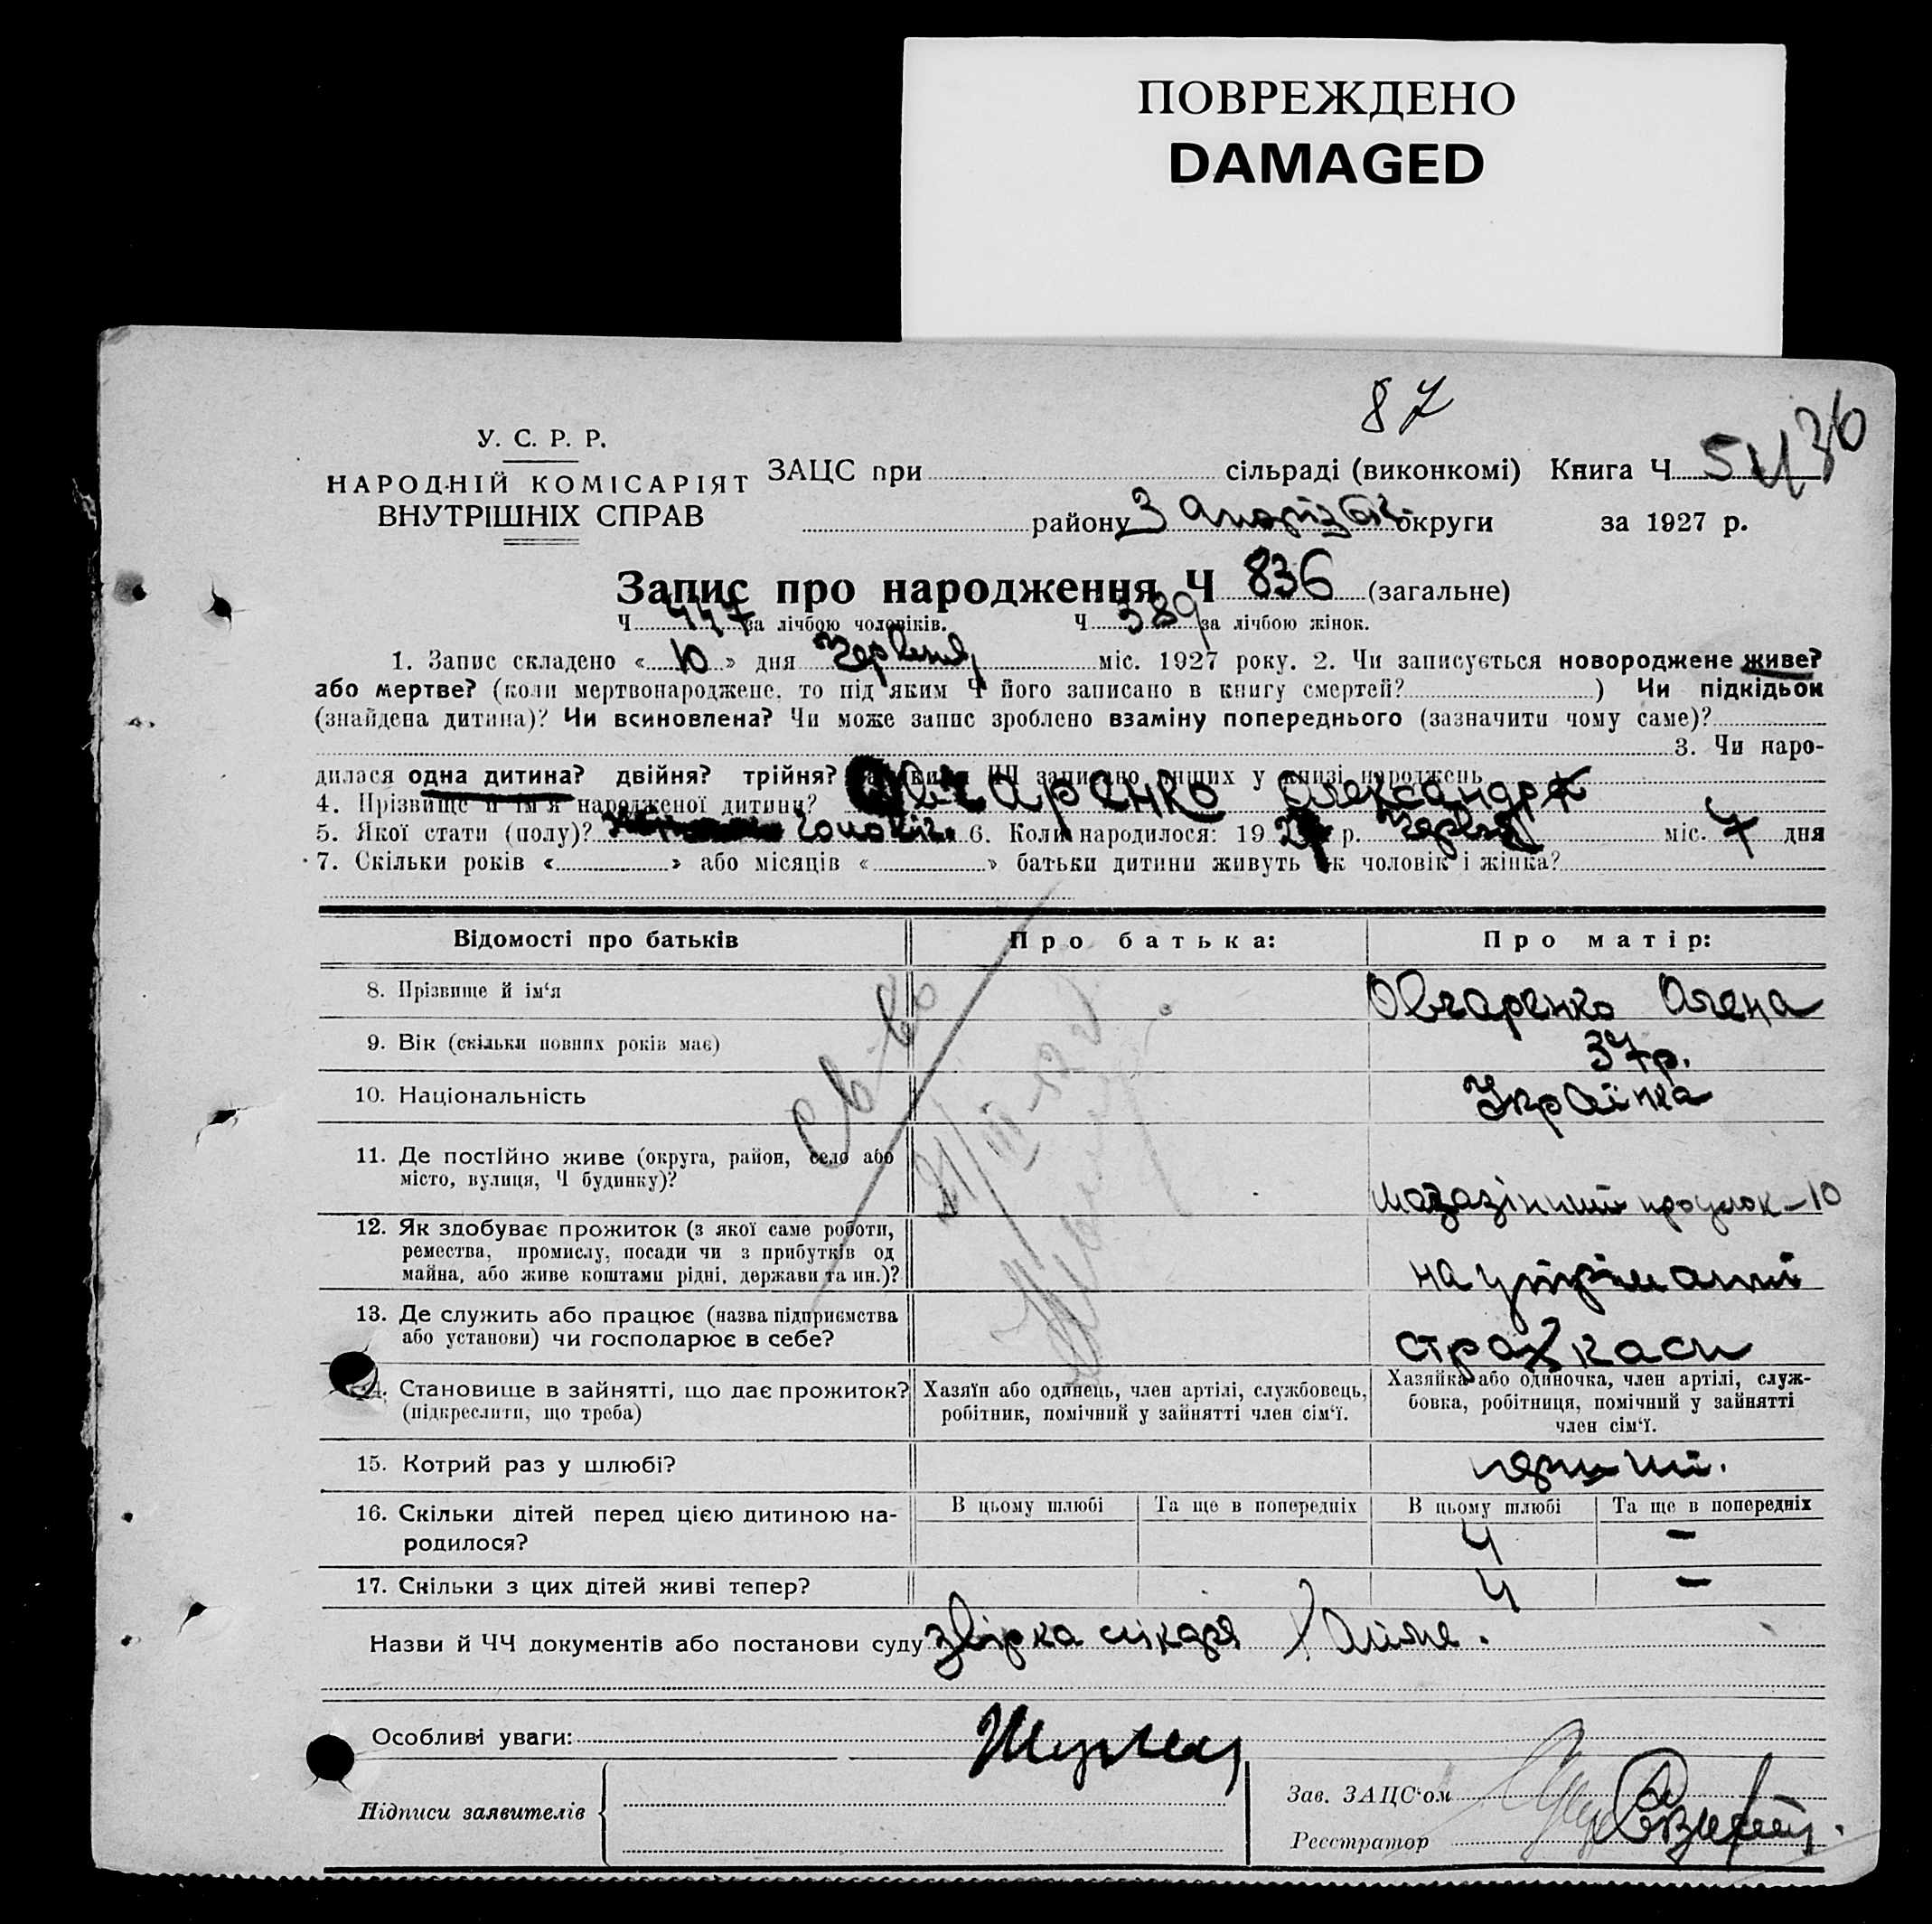 ПОВРЕЖДЕНО
DAMAGED
87
У. С. Р. Р.
НАРОДНІЙ КОМІСАРІЯТ
ВНУТРІШНІХ СПРАВ
ЗАЦС при сільраді (виконкомі) Книга Ч 5
району округи за 1927 р.
Запис про народження Ч 836 (загальне)
Ч 447 за лічбою чоловіків. Ч 389 за лічбою жінок.
1. Запис складено «10» дня червня міс. 1927 року. 2. Чи записується новороджене живе?
або мертве? (коли мертвонароджене, то під яким Ч його записано в книгу смертей? ) Чи підкідьок
(знайдена дитина)? Чи всиновлена? Чи може запис зроблено взаміну попереднього (зазначити чому саме)?
3. Чи наро-
дилася одна дитина? двійня? трійня? ЧЧ записано инших у книзі народжень
4. Прізвище й ім'я народженої дитини? Овчаренко Олександр
5. Якої стати (полу)? чоловіч. 6. Коли народилося: 1927 р. червня міс. 7 дня
7. Скільки років « » або місяців « » батьки дитини живуть як чоловік і жінка?
Відомості про батьків Про батька: Про матір:
8. Прізвище й ім'я Овчаренко Олена
9. Вік (скільки повних років має) 37 р.
10. Національність Українка
11. Де постійно живе (округа, район, село або
місто, вулиця, Ч будинку)? магазінний проулок - 10
12. Як здобуває прожиток (з якої саме роботи,
ремества, промислу, посади чи з прибутків од
майна, або живе коштами рідні, держави та ин.)? на утріманні
13. Де служить або працює (назва підприємства
або установи) чи господарює в себе? страхкаси
14. Становище в зайнятті, що дає прожиток?
(підкреслити, що треба)
Хазяїн або одинець, член артілі, службовець,
робітник, помічний у зайнятті член сім'ї.
Хазяйка або одиночка, член артілі, служ-
бовка, робітниця, помічний у зайнятті
член сім'ї.
15. Котрий раз у шлюбі? перший.
16. Скільки дітей перед цією дитиною на-
родилося?
В цьому шлюбі Та ще в попередніх В цьому шлюбі Та ще в попередніх
4 –
17. Скільки з цих дітей живі тепер? 4 –
Назви й ЧЧ документів або постанови суду звірка лікаря
Особливі уваги:
Підписи заявителів
Зав. ЗАЦС'ом
Реєстратор